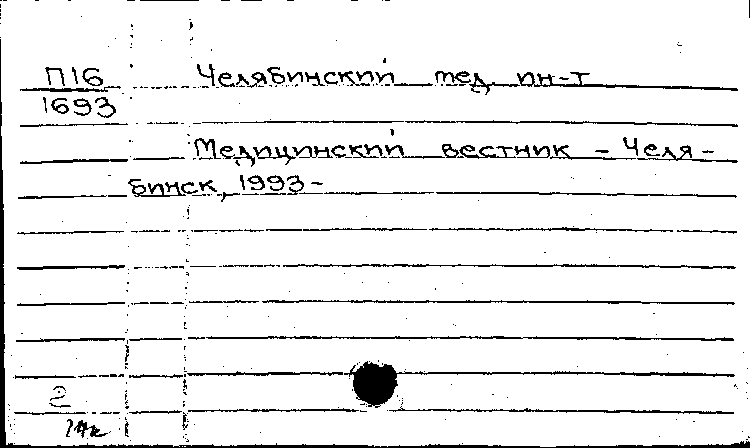 П16 Челябинский мед. ин-т
1693
Медицинский вестник – Челя-
бинск, 1993-
2